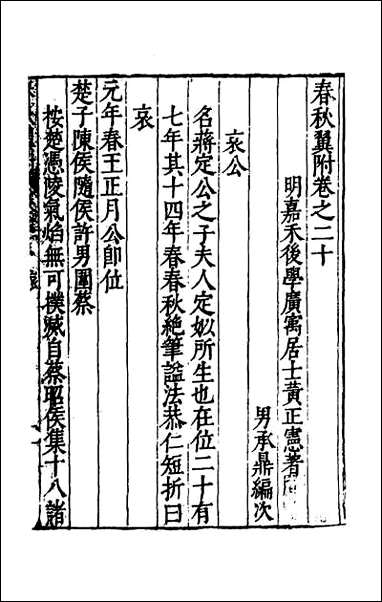 春秋翼附卷之二十
明嘉禾後學廣寓居士黃正憲著
男承鼎編次
哀公
名蔣定公之子夫人定姒所生也在位二十有
七年其十四年春春秋絕筆謚法恭仁短折曰
哀
元年春王正月公卽位
楚子陳侯隨侯許男圍蔡
按楚憑陵氣焰無可撲滅自蔡昭侯集十八諸